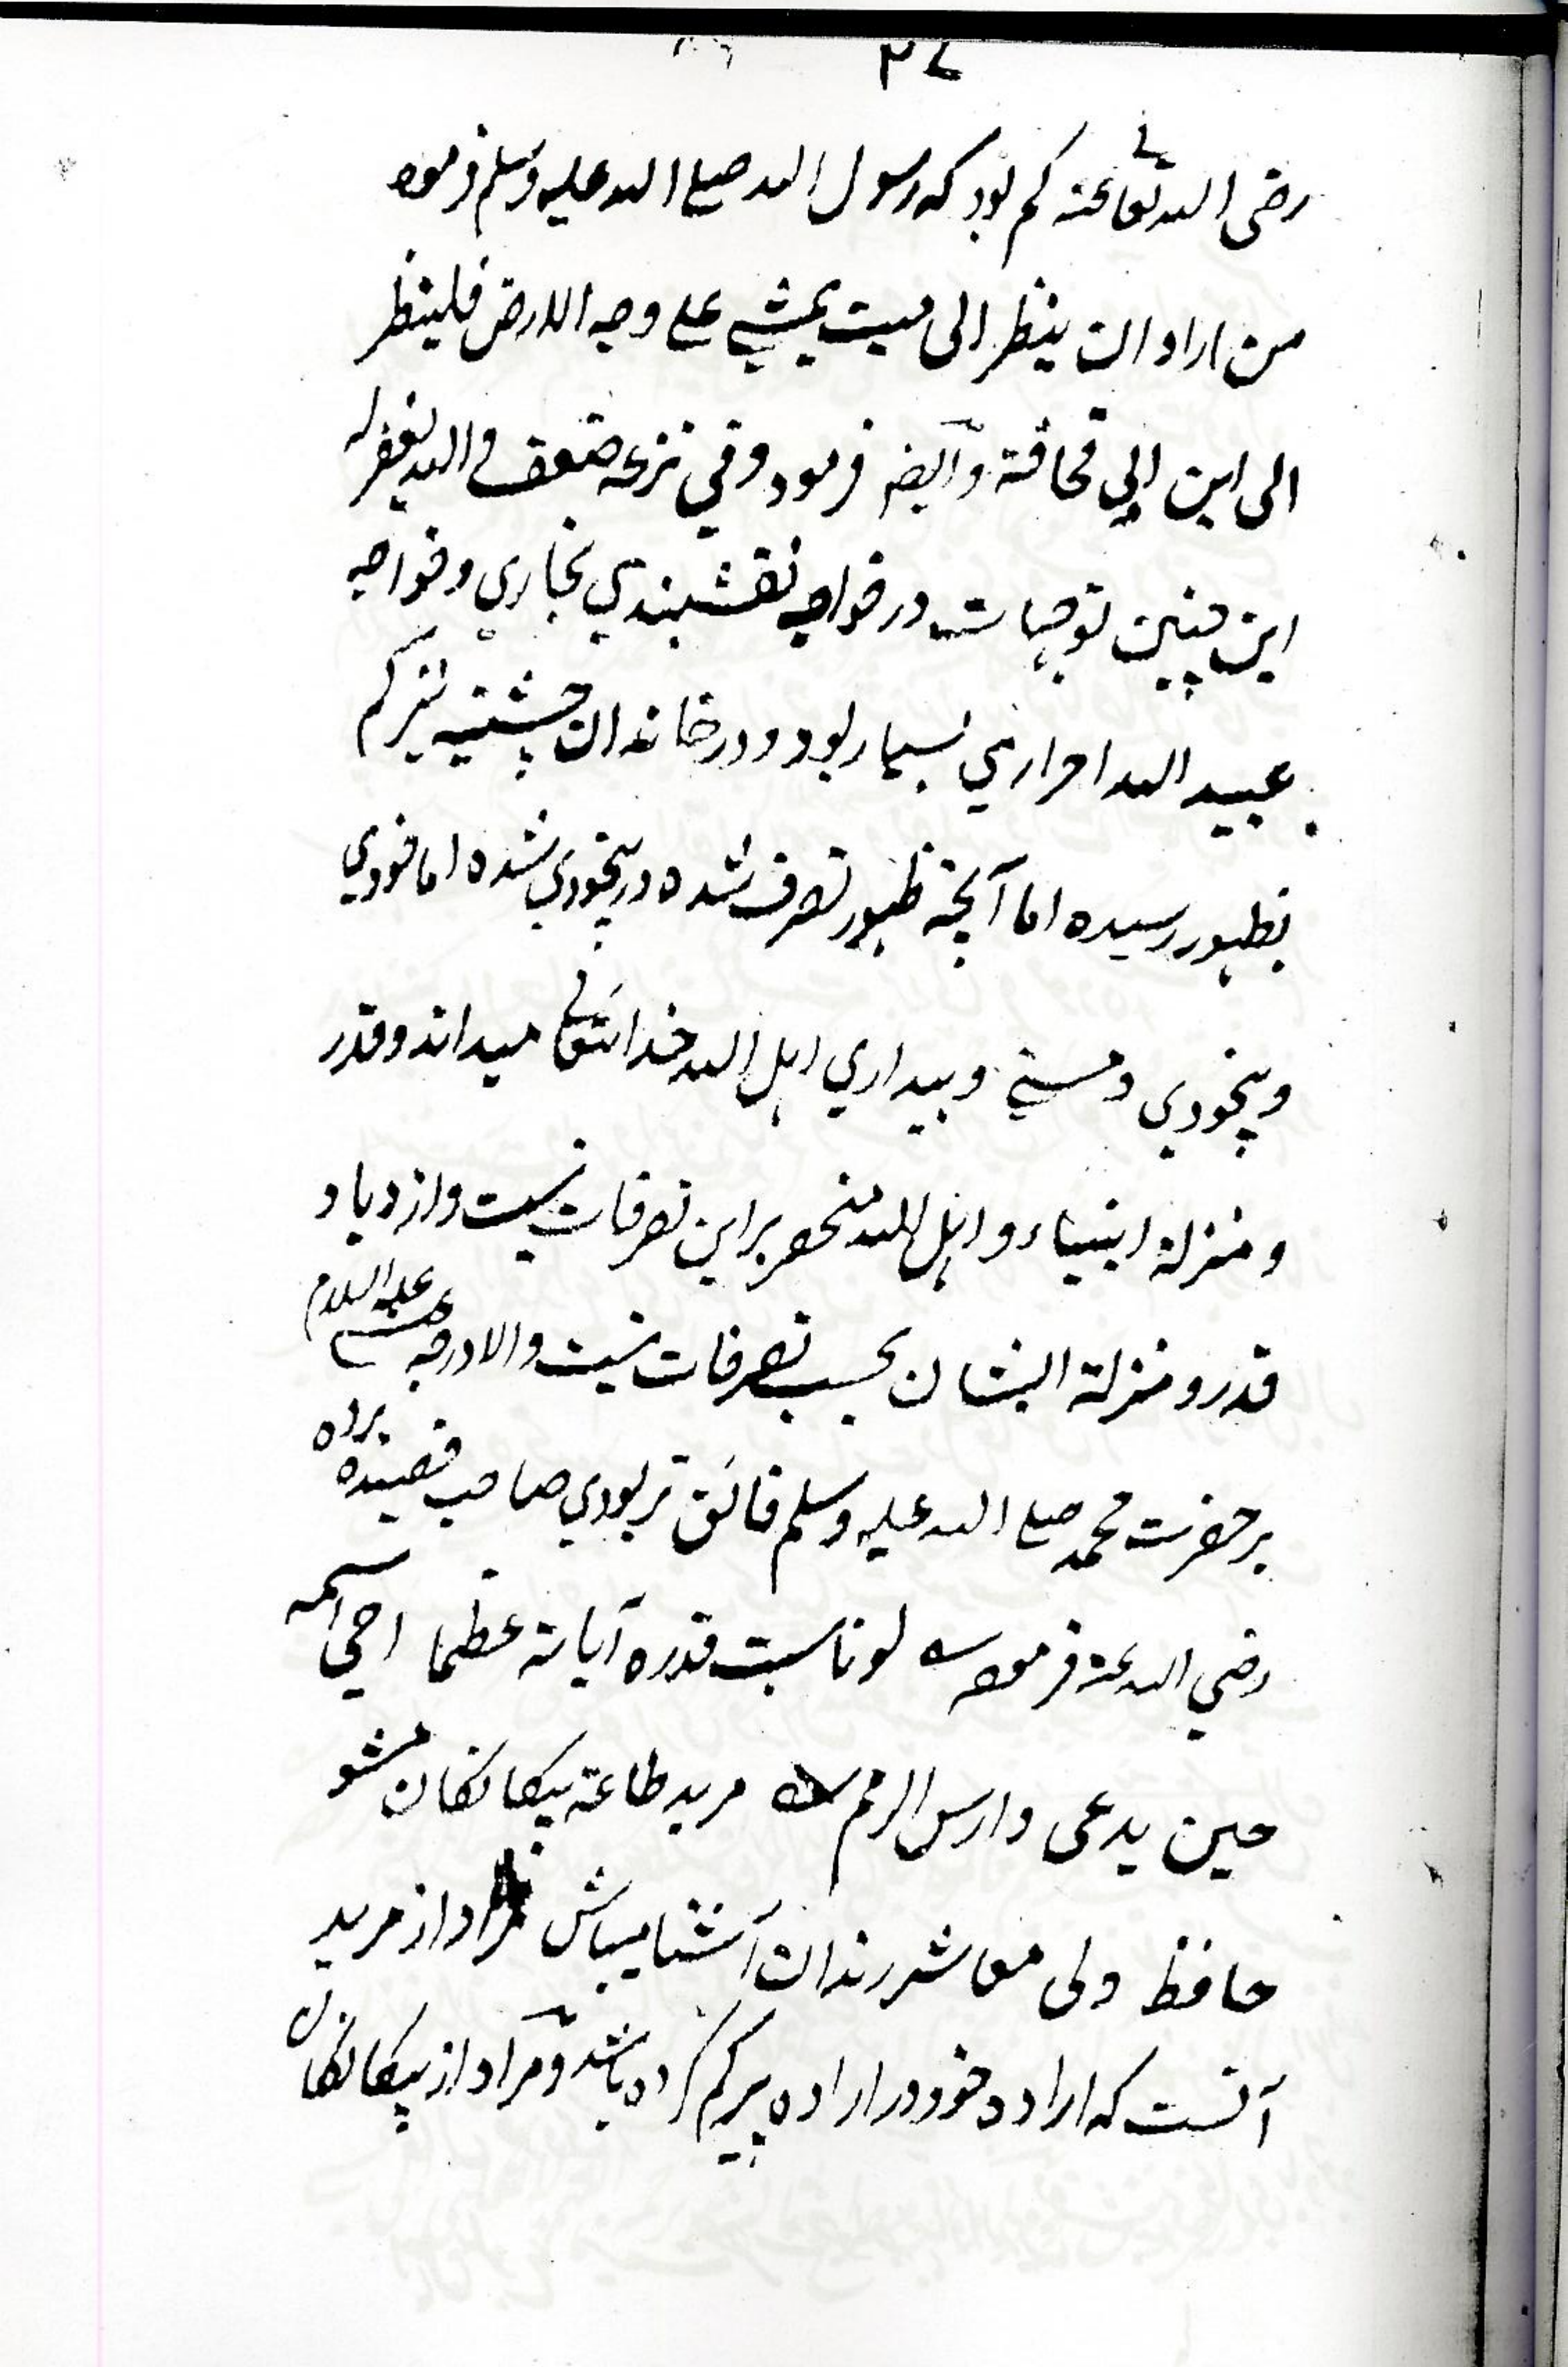 ۳۷
رضی الله تعالی عنه کم بود که رسول الله صلی الله علیه وسلم فرموده
من اراد ان ینظر الی میت یمشی علی وجه الارض فلینظر
الی ابن ابی قحافة و ایضا فرمود و فی نزعه ضعف و الله یغفر له
این چنین توجهات در خواجه نقشبندی بخاری و خواجه
عبید الله احراری بسیار بود و در خاندان چشتیه نیز کم
بظهور رسیده اما آنچه ظهور تصرف شده در بیخودی شده اما خودی
و بیخودی و مستی و بیداری اهل الله خدا تعالی میداند و قدر
و منزلة انبیاء و اهل الله منحصر بر این تصرفات نیست و ازدیاد
قدر و منزلة ایشان بحسب تصرفات نیست والا درجه عیسی علیه السلام
بر حضرت محمد صلی الله علیه وسلم فائق تر بودی صاحب قصیده برده
رضی الله عنه فرموده لو ناسبت قدره آیاته عظما احیی اسمه
حین یدعی دارس الرمم مرید طاعة بیگانگان مشو
حافظ ولی معاشر رندان آشنا میباش مراد از مرید
آنست که اراده خود در اراده پیر گم کرده باشد و مراد از بیگانگان